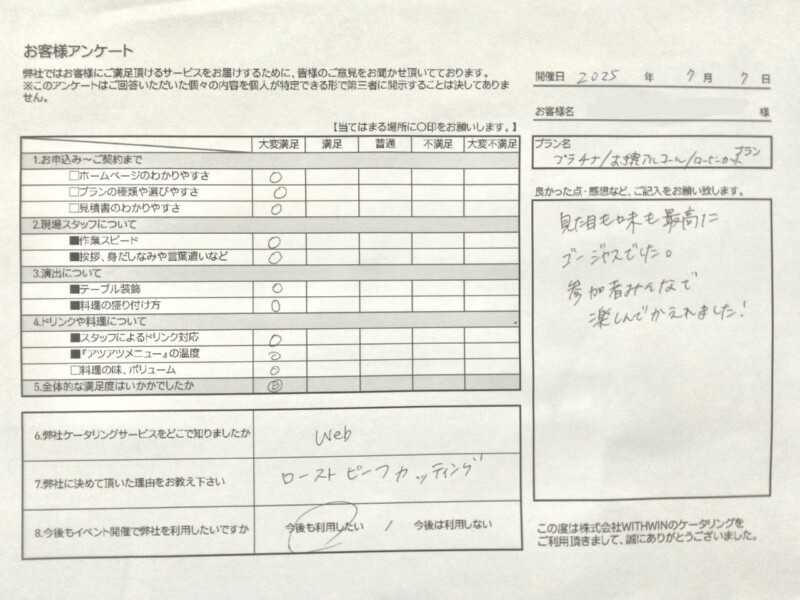 お客様アンケート
弊社ではお客様にご満足頂けるサービスをお届けするために、皆様のご意見をお聞かせ頂いております。
※このアンケートはご回答いただいた個々の内容を個人が特定できる形で第三者に開示することは決してありま
せん。
開催日 2025 年 7 月 7 日
お客様名 様
【当てはまる場所に〇印をお願いします。】
大変満足 満足 普通 不満足 大変不満足
プラン名
プラチナ/ アルコール/ プラン
1.お申込み～ご契約まで
□ホームページのわかりやすさ ○
□プランの種類や選びやすさ ○
□見積書のわかりやすさ ○
2.現場スタッフについて
■作業スピード ○
■挨拶、身だしなみや言葉遣いなど ○
3.演出について
■テーブル装飾 ○
■料理の盛り付け方 ○
4.ドリンクや料理について
■スタッフによるドリンク対応 ○
■『アツアツメニュー』の温度 ○
□料理の味、ボリューム ○
5.全体的な満足度はいかかでしたか ◎
良かった点・感想など、ご記入をお願い致します。
見た目も味も最高に
ゴージャスでした。
参加者みんなで
楽しんでかえれました!
6.弊社ケータリングサービスをどこで知りましたか Web
7.弊社に決めて頂いた理由をお教え下さい ローストビーフカッティング
8.今後もイベント開催で弊社を利用したいですか 今後も利用したい / 今後は利用しない
この度は株式会社WITHWINのケータリングを
ご利用頂きまして、誠にありがとうございました。